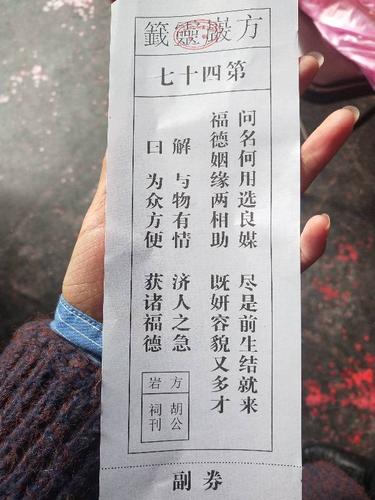 方巖靈籤
第四十七
问名何用选良媒 尽是前生结就来
福德姻缘两相助 既妍容貌又多才
解曰
与物有情 济人之急
为众方便 获诸福德
方岩
胡公
祠刊
副券